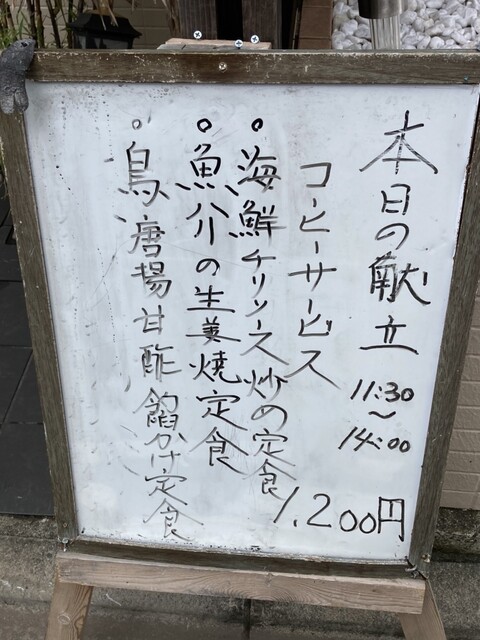 本日の献立
11:30
〜
14:00
コーヒーサービス
1.200円
。海鮮チリソース炒の定食
。魚介の生姜焼定食
。鳥唐揚甘酢餡かけ定食